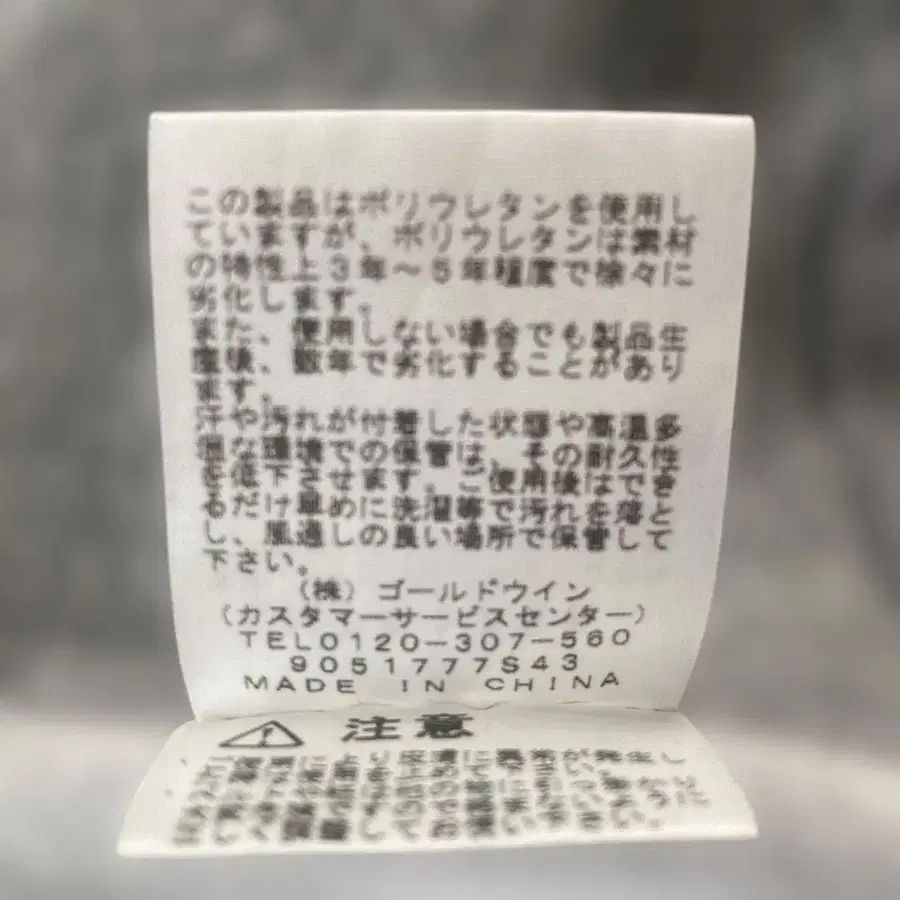 この製品はポリウレタンを使用し
ていますが、ポリウレタンは素材
の特性上3年～5年程度で徐々に
劣化します。
また、使用しない場合でも製品生
産後、数年で劣化することがあり
ます。
汗や汚れが付着した状態や高温多
湿な環境での保管は、その耐久性
を低下させます。ご使用後はでき
るだけ早めに洗濯等で汚れを落と
し、風通しの良い場所で保管して
下さい。
（株）ゴールドウイン
（カスタマーサービスセンター）
TEL0120-307-560
9051777S43
MADE IN CHINA
注意